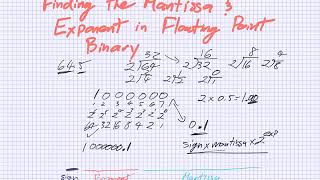 Finding the Mantissa &
Exponent in Floating Point
Binary
64.5
32 16 8 4
2√64 2√32 2√16 2√8
2 1 0
2√4 2√2 2√1
1 0 0 0 0 0 0
1 2 3 4 5 6 7
2 × 0.5 = 1.00
64 32 16 8 4 2 1
0.1
1000000.1
sign × mantissa × 2^exp
sign Exponent Mantissa